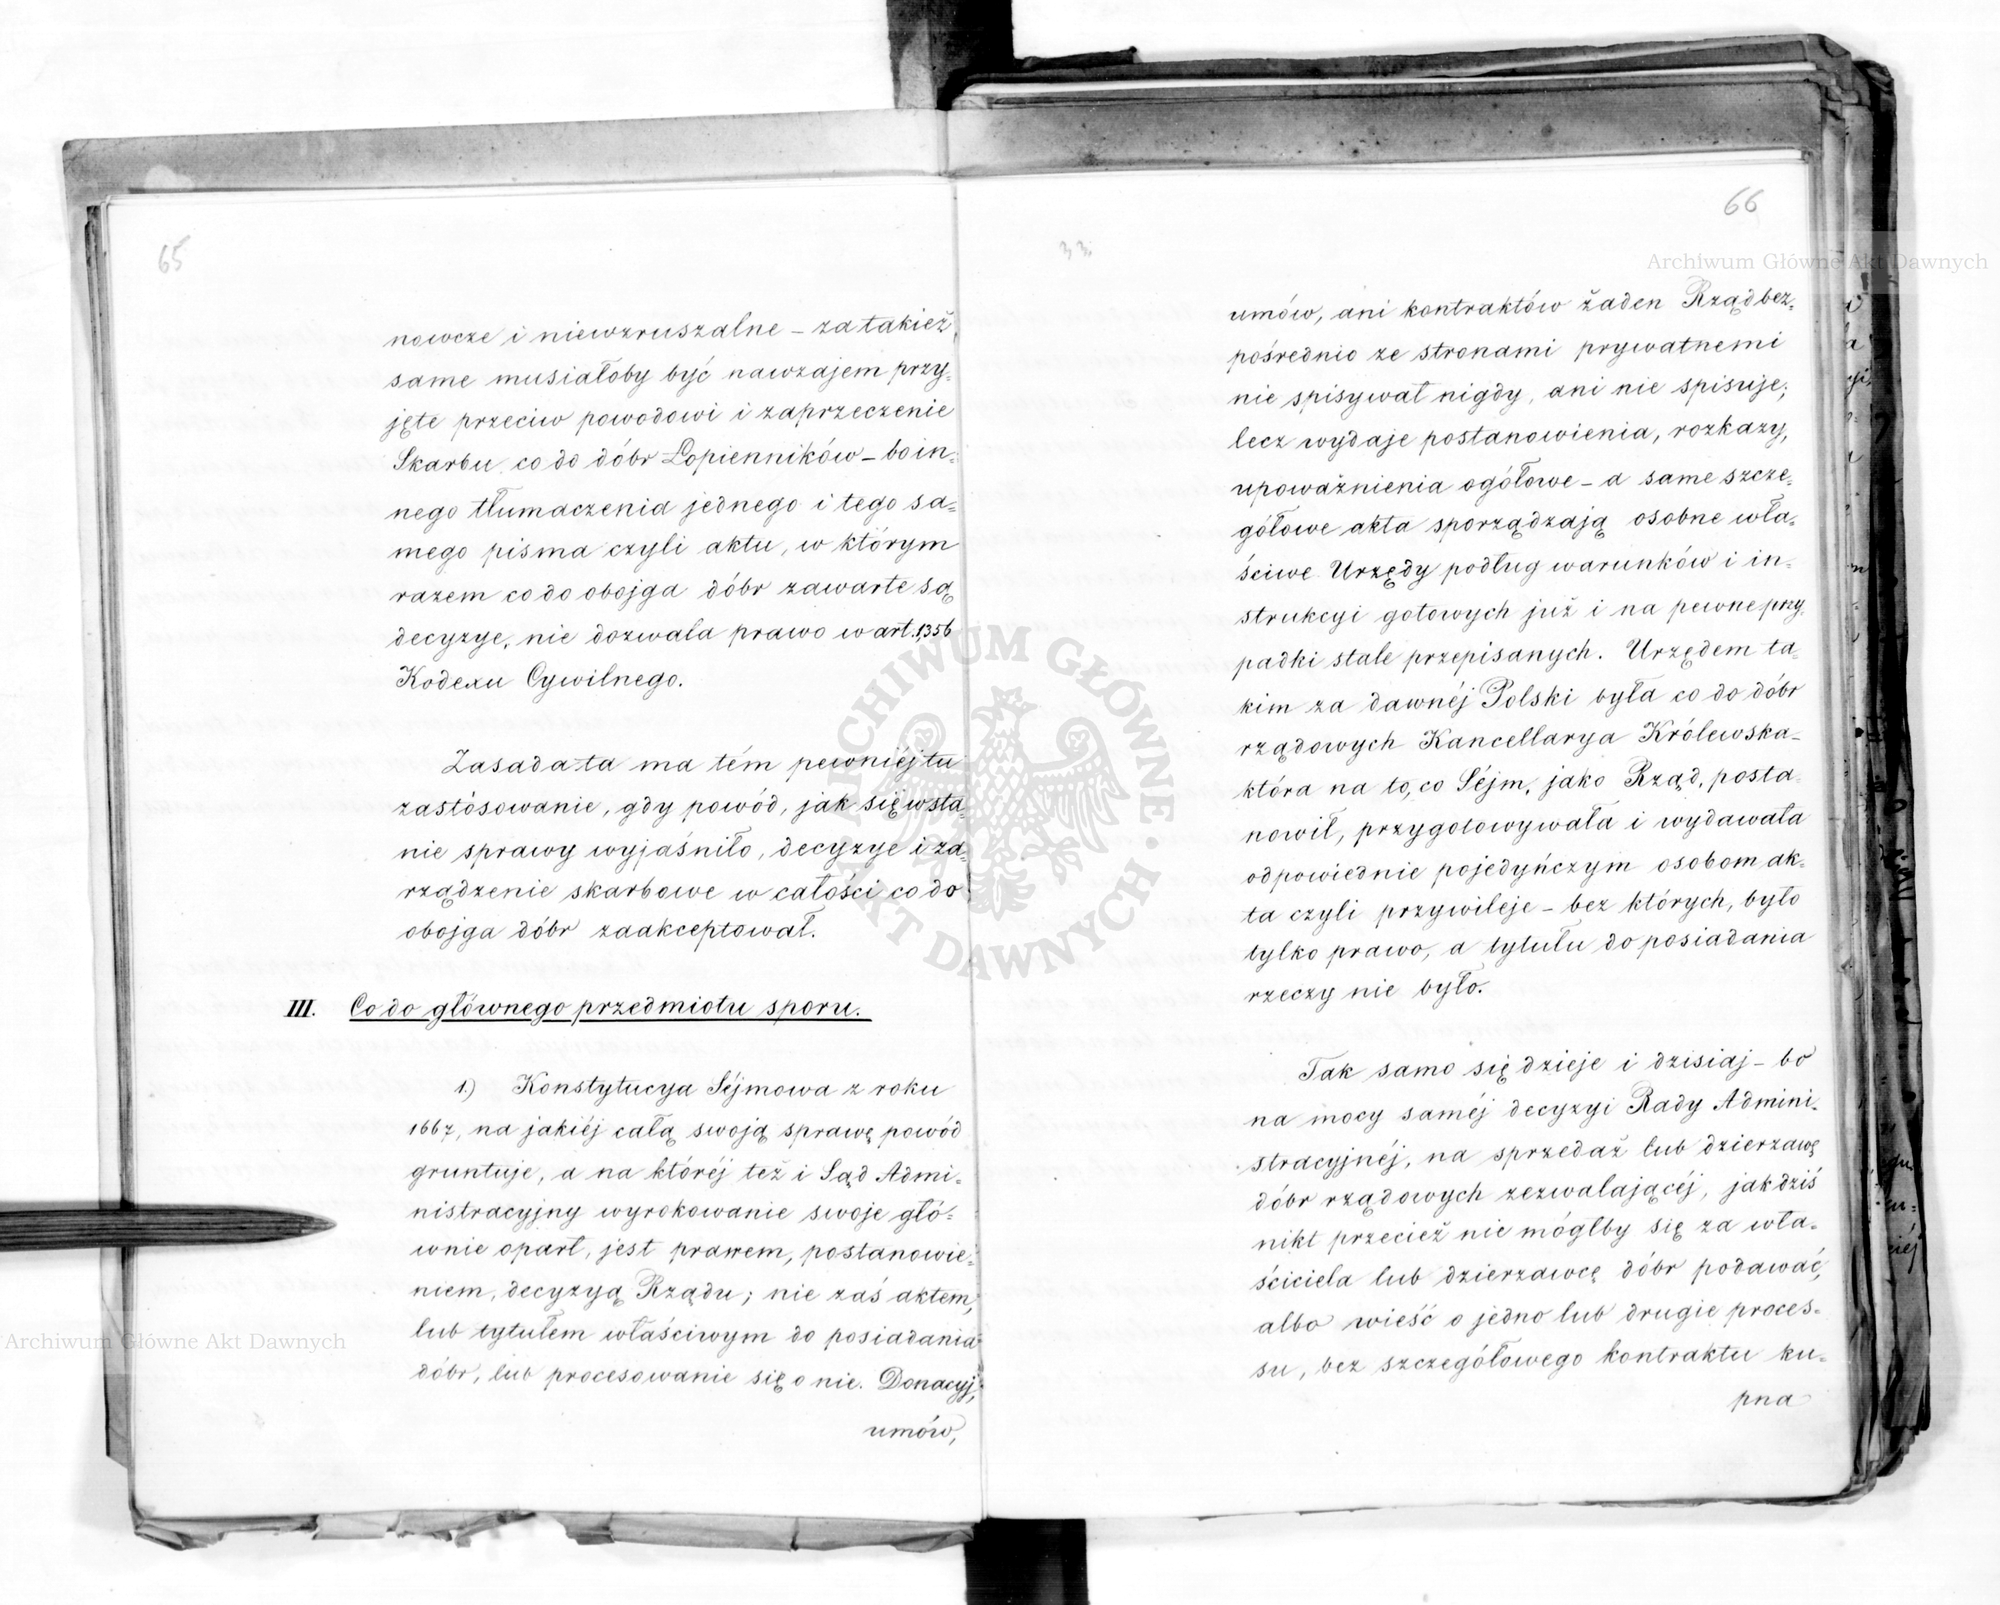 65
nowcze i niewzruszalne – za takież
same musiałoby być nawzajem przy-
jęte przeciw powodowi i zaprzeczenie
Skarbu co do dóbr Łopienników – bo in-
nego tłumaczenia jednego i tego sa-
mego pisma czyli aktu, w którym
razem co do obojga dóbr zawarte są
decyzye, nie dozwala prawo w art. 1356
Kodexu Cywilnego.
Zasada ta ma tém pewniéj tu
zastósowanie, gdy powód, jak się w sta-
nie sprawy wyjaśniło, decyzye i za-
rządzenie skarbowe w całości co do
obojga dóbr zaakceptował.
III. Co do głównego przedmiotu sporu.
1.) Konstytucya Séjmowa z roku
1667, na jakiéj całą swoją sprawę powód
gruntuje, a na któréj też i Sąd Admi-
nistracyjny wyrokowanie swoje głó-
wnie oparł, jest prawem, postanowie-
niem, decyzyą Rządu; nie zaś aktem,
lub tytułem właściwym do posiadania
dóbr, lub procesowanie się o nie. Donacyj,
umów,
66
33.
umów, ani kontraktów żaden Rząd bez-
pośrednio ze stronami prywatnemi
nie spisywał nigdy, ani nie spisuje;
lecz wydaje postanowienia, rozkazy,
upoważnienia ogółowe – a same szcze-
gółowe akta sporządzają osobne wła-
ściwe Urzędy podług warunków i in-
strukcyi gotowych już i na pewne przy-
padki stale przepisanych. Urzędem ta-
kim za dawnéj Polski była co do dóbr
rządowych Kancellarya Królewska –
która na to, co Séjm, jako Rząd, posta-
nowił, przygotowywała i wydawała
odpowiednie pojedyńczym osobom ak-
ta czyli przywileje – bez których, było
tylko prawo, a tytułu do posiadania
rzeczy nie było.
Tak samo się dzieje i dzisiaj – bo
na mocy saméj decyzyi Rady Admini-
stracyjnéj, na sprzedaż lub dzierzawę
dóbr rządowych zezwalającéj, jak dziś
nikt przecież nie mógłby się za wła-
ściciela lub dzierzawcę dóbr podawać,
albo wieść o jedno lub drugie proces-
su, bez szczegółowego kontraktu ku-
pna
Archiwum Główne Akt Dawnych
Archiwum Główne Akt Dawnych
ARCHIWUM GŁÓWNE · AKT DAWNYCH ·